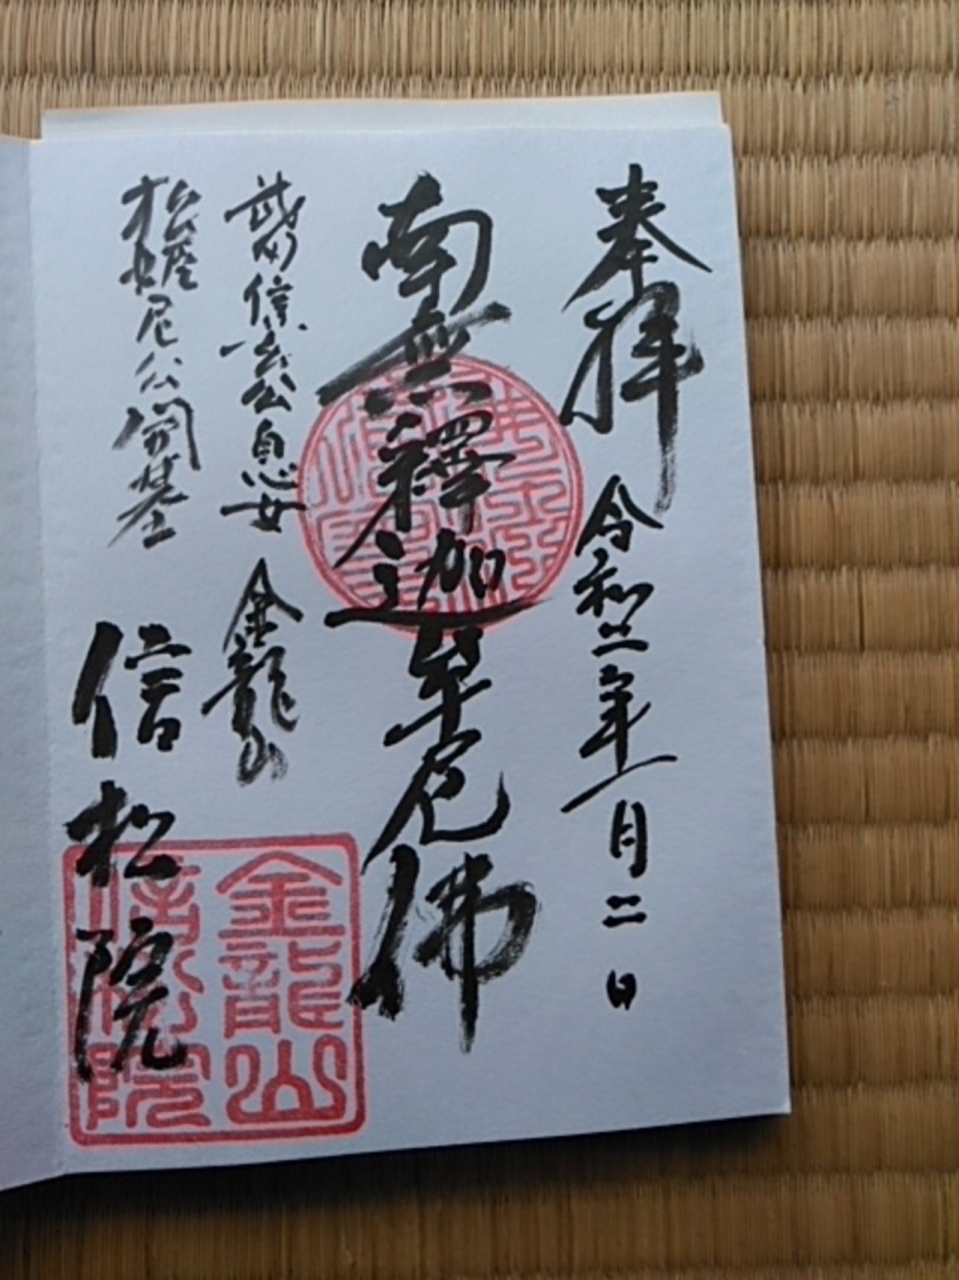 奉拝 令和二年一月二日
南無釋迦牟尼佛
武田信玄公息女 金龍山
松姫尼公開基
信松院
金龍山
信松院